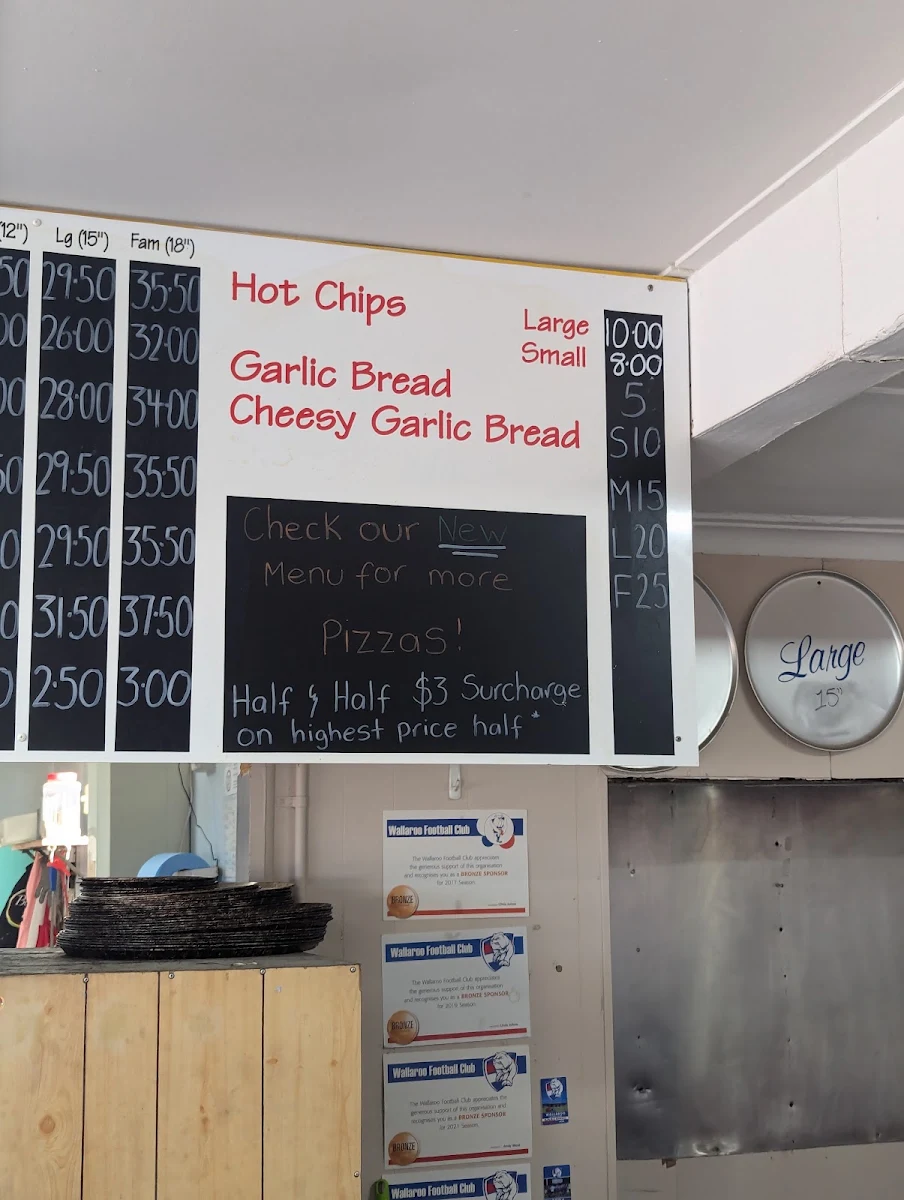 (12") Lg (15") Fam (18")
50 29·50 35·50
00 26·00 32·00
00 28·00 34·00
50 29·50 35·50
0 29·50 35·50
0 31·50 37·50
0 2·50 3·00
Hot Chips
Large 10·00
Small 8·00
Garlic Bread 5
Cheesy Garlic Bread S10
M15
L20
F25
Check our New
Menu for more
Pizzas!
Half & Half $3 Surcharge
on highest price half*
Large
15"
Wallaroo Football Club
The Wallaroo Football Club appreciates
the generous support of this organisation
and recognises you as a BRONZE SPONSOR
BRONZE
Wallaroo Football Club
The Wallaroo Football Club appreciates
the generous support of this organisation
and recognises you as a BRONZE SPONSOR
BRONZE
Wallaroo Football Club
The Wallaroo Football Club appreciates the
generous support of this organisation and
recognises you as a BRONZE SPONSOR
for 2021 Season.
BRONZE
Wallaroo Football Club